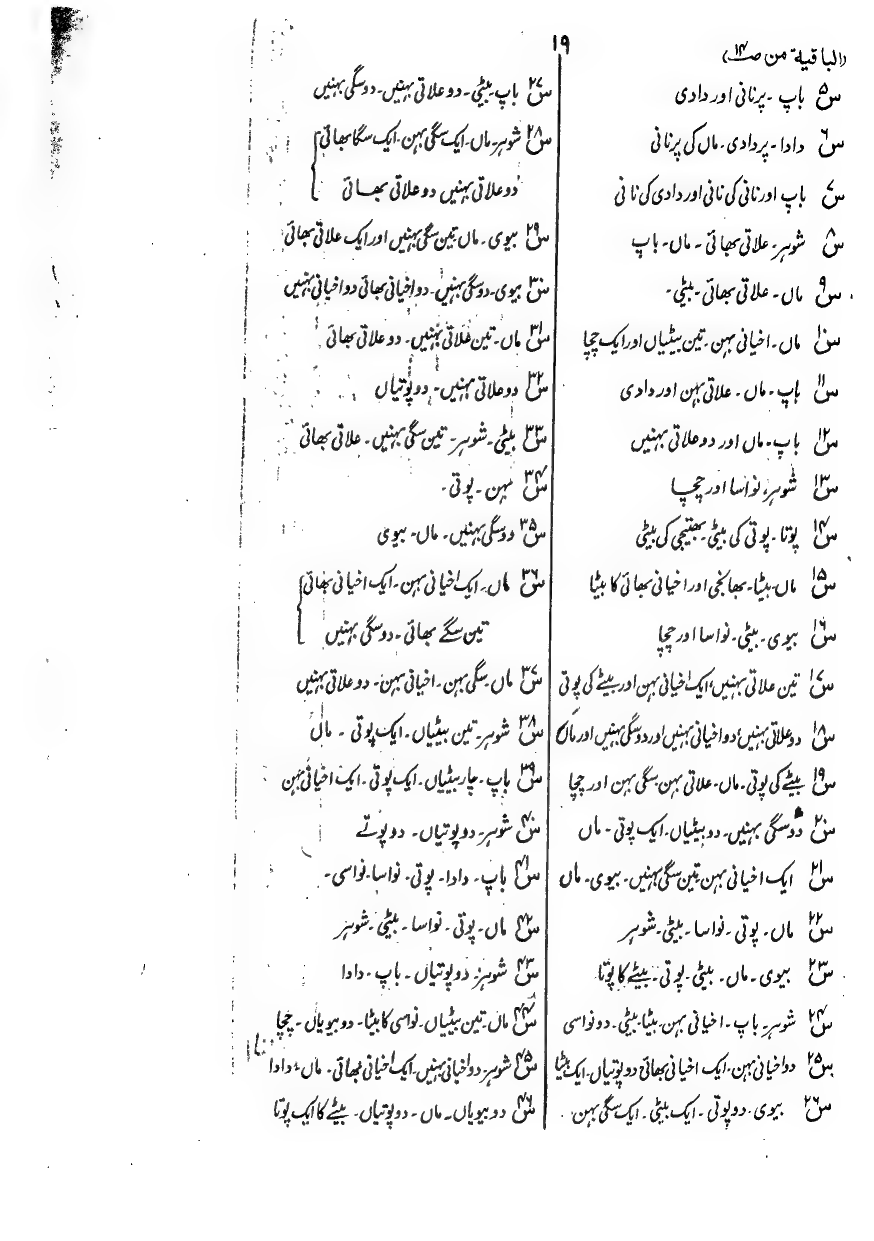 ۱۹
(الباقیة من صـ۱۴)
س۵ باپ ۔ پرنانی اور دادی
س۶ دادا ۔ پردادی ۔ ماں کی پرنانی
س۷ باپ اور نانی کی نانی اور دادی کی نانی
س۸ شوہر ۔ علاتی بھائی ۔ ماں ۔ باپ
س۹ ماں ۔ علاتی بھائی ۔ بیٹی ۔
س۱۰ ماں ۔ اخیانی بہن ۔ تین بیٹیاں اور ایک چچا
س۱۱ باپ ۔ ماں ۔ علاتی بہن اور دادی
س۱۲ باپ ۔ ماں اور دو علاتی بہنیں
س۱۳ شوہر، نواسا اور چچا
س۱۴ پوتا ۔ پوتی کی بیٹی ۔ بھتیجی کی بیٹی
س۱۵ ماں ۔ بیٹا ۔ بھانجی اور اخیانی بھائی کا بیٹا
س۱۶ بیوی ۔ بیٹی ۔ نواسا اور چچا
س۱۷ تین علاتی بہنیں، ایک اخیانی بہن اور بیٹے کی پوتی
س۱۸ دو علاتی بہنیں، دو اخیانی بہنیں اور دو سگی بہنیں اور ماں
س۱۹ بیٹے کی پوتی ۔ ماں ۔ علاتی بہن ۔ سگی بہن اور چچا
س۲۰ دو سگی بہنیں ۔ دو بیٹیاں ۔ ایک پوتی ۔ ماں
س۲۱ ایک اخیانی بہن ۔ تین سگی بہنیں ۔ بیوی ۔ ماں
س۲۲ ماں ۔ پوتی ۔ نواسا ۔ بیٹی ۔ شوہر
س۲۳ بیوی ۔ ماں ۔ بیٹی ۔ پوتی ۔ بیٹے کا پوتا
س۲۴ شوہر ۔ باپ ۔ اخیانی بہن ۔ بیٹا ۔ بیٹی ۔ دو نواسی
س۲۵ دو اخیانی بہن ۔ ایک اخیانی بھائی دو پوتیاں ۔ ایک بیٹا
س۲۶ بیوی ۔ دو پوتی ۔ ایک بیٹی ۔ ایک سگی بہن
س۲۷ باپ ۔ بیٹی ۔ دو علاتی بہنیں ۔ دو سگی بہنیں
س۲۸ شوہر ۔ ماں ۔ ایک سگی بہن ۔ ایک سگا بھائی
دو علاتی بہنیں دو علاتی بھائی
س۲۹ بیوی ۔ ماں تین سگی بہنیں اور ایک علاتی بھائی
س۳۰ بیوی ۔ دو سگی بہنیں ۔ دو اخیانی بھائی دو اخیانی بہنیں
س۳۱ ماں ۔ تین علاتی بہنیں ۔ دو علاتی بھائی
س۳۲ دو علاتی بہنیں ۔ دو پوتیاں
س۳۳ بیٹی ۔ شوہر ۔ تین سگی بہنیں ۔ علاتی بھائی
س۳۴ بہن ۔ پوتی ۔
س۳۵ دو سگی بہنیں ۔ ماں ۔ بیوی
س۳۶ ماں ۔ ایک اخیانی بہن ۔ ایک اخیانی بھائی
تین سگے بھائی ۔ دو سگی بہنیں
س۳۷ ماں ۔ سگی بہن ۔ اخیانی بہن ۔ دو علاتی بہنیں
س۳۸ شوہر ۔ تین بیٹیاں ۔ ایک پوتی ۔ ماں
س۳۹ باپ ۔ چار بیٹیاں ۔ ایک پوتی ۔ ایک اخیانی بہن
س۴۰ شوہر ۔ دو پوتیاں ۔ دو پوتے
س۴۱ باپ ۔ دادا ۔ پوتی ۔ نواسا ۔ نواسی ۔
س۴۲ ماں ۔ پوتی ۔ نواسا ۔ بیٹی ۔ شوہر
س۴۳ شوہر ۔ دو پوتیاں ۔ باپ ۔ دادا
س۴۴ ماں ۔ تین بیٹیاں ۔ نواسی کا بیٹا ۔ دو بیویاں ۔ چچا
س۴۵ شوہر ۔ دو اخیانی بہنیں ۔ ایک اخیانی بھائی ۔ ماں ، دادا
س۴۶ دو بیویاں ۔ ماں ۔ دو پوتیاں ۔ بیٹے کا ایک پوتا